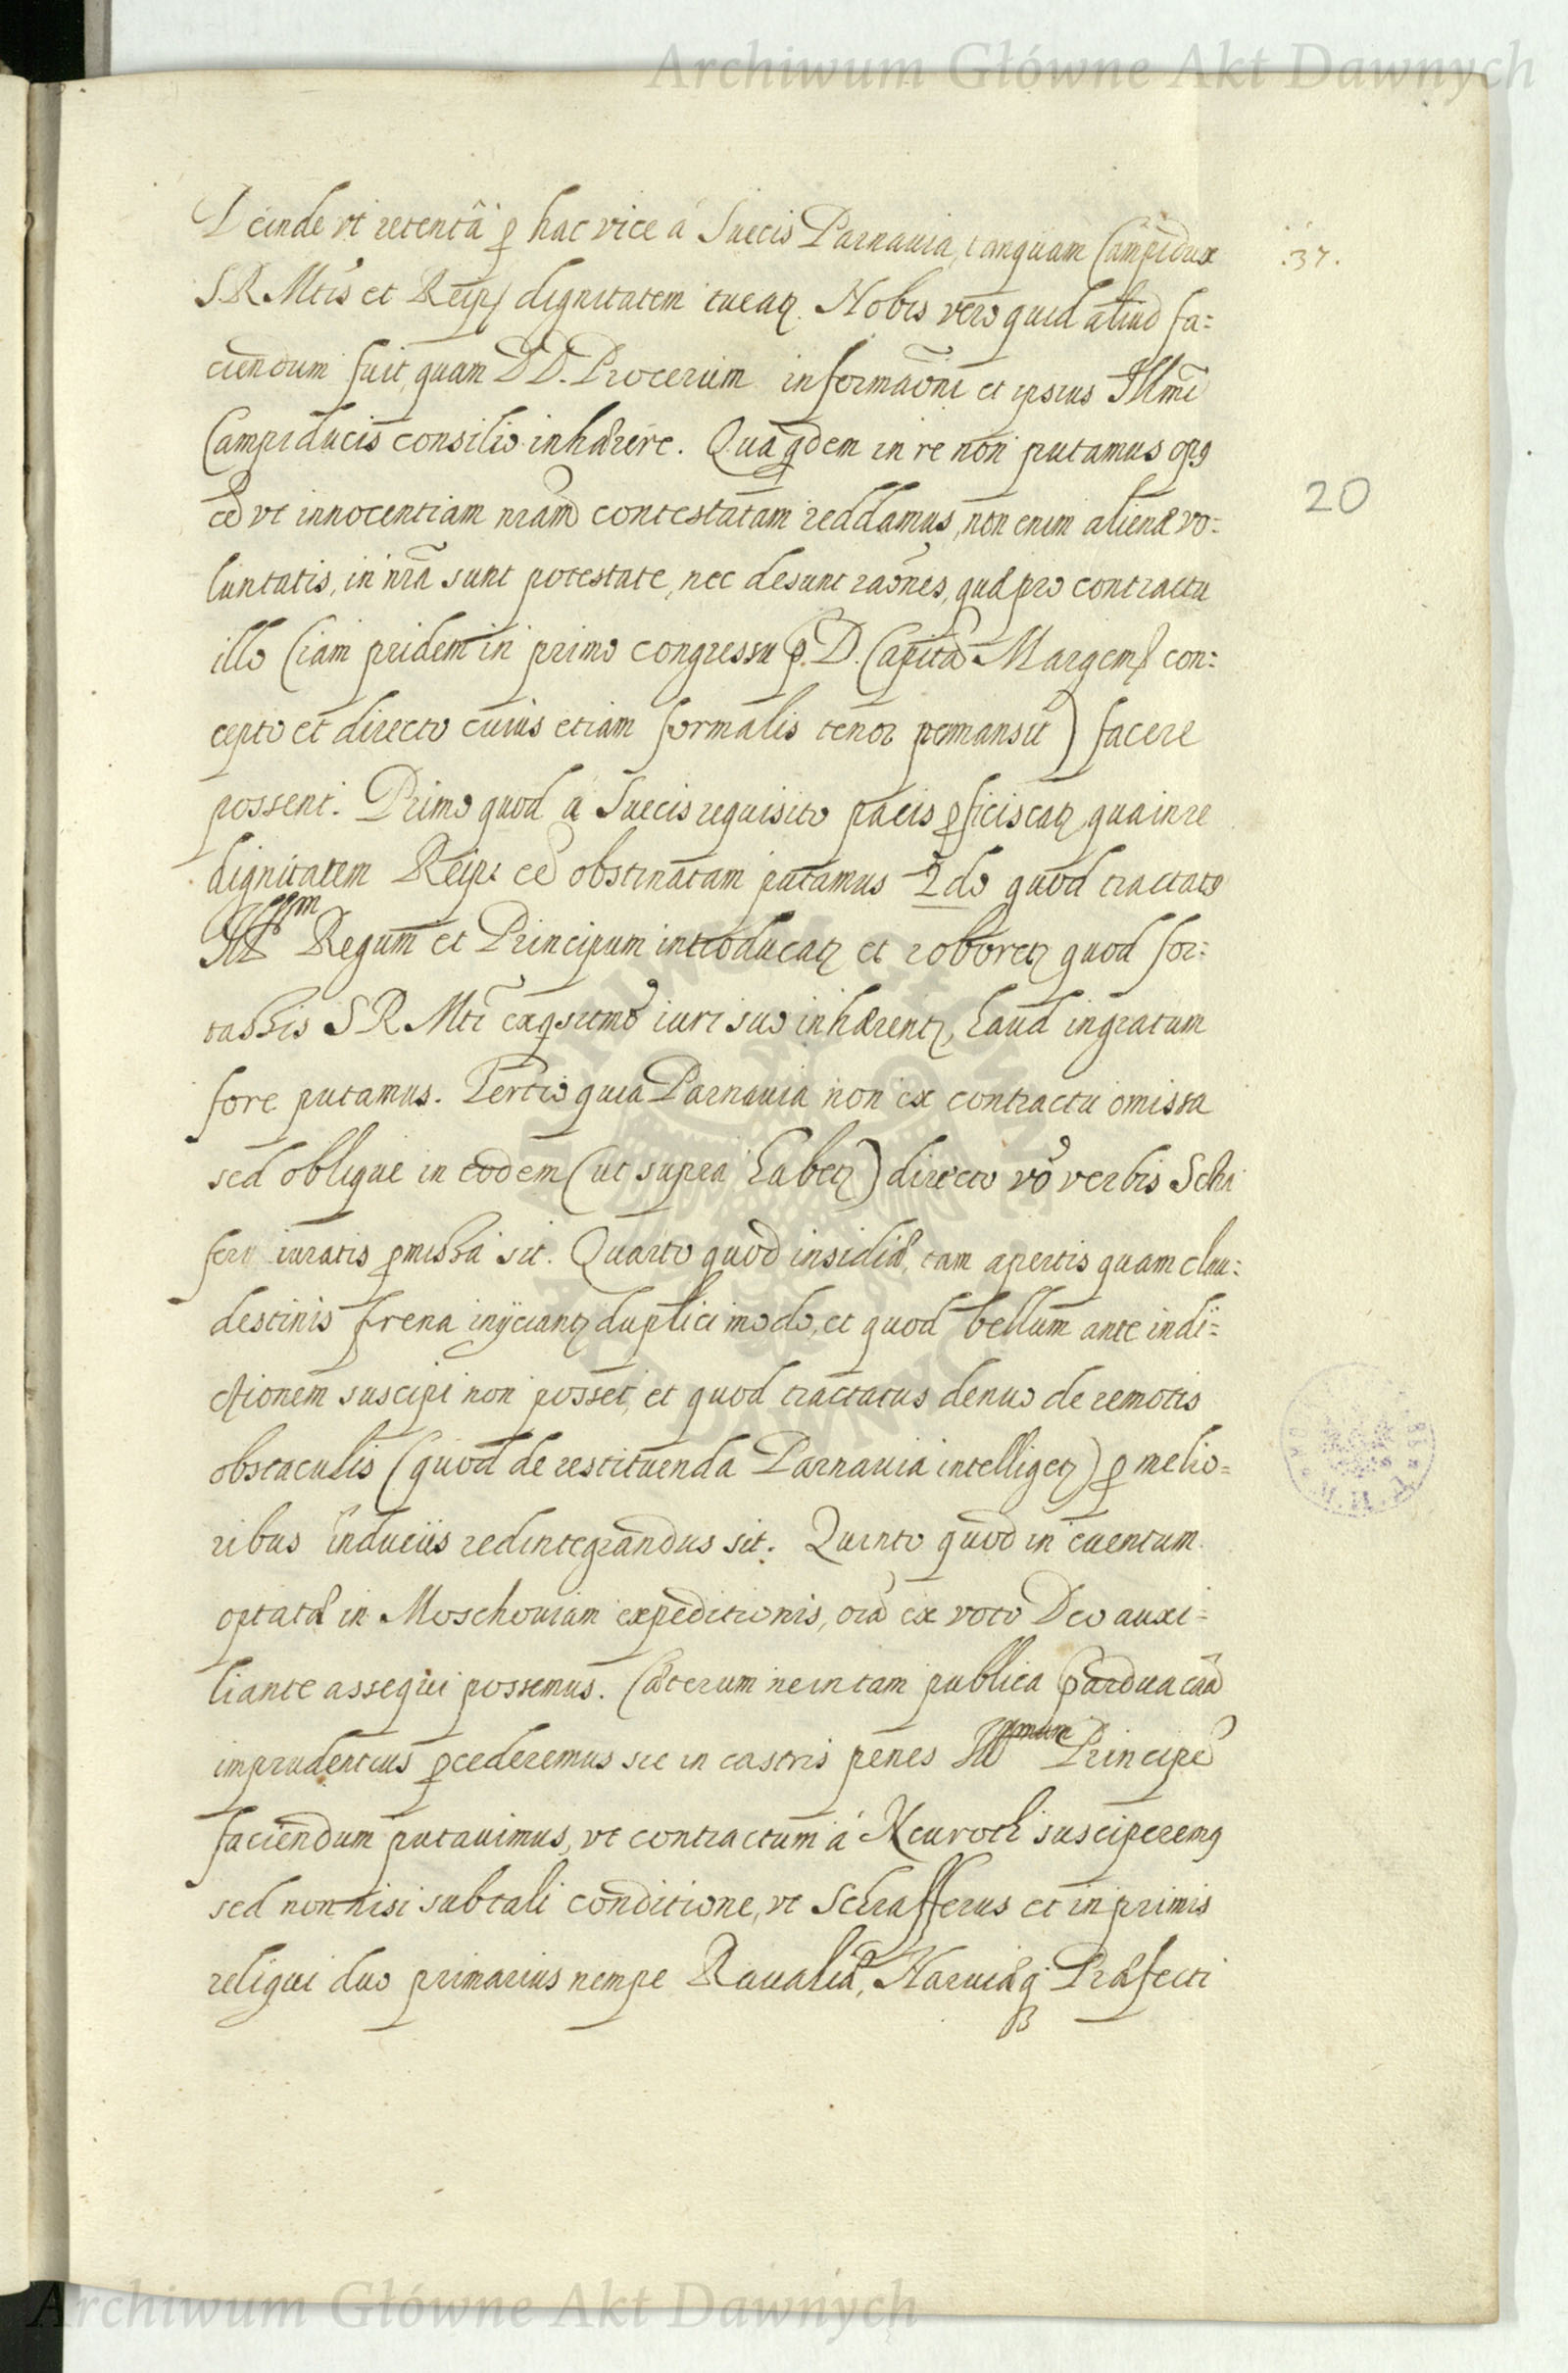 Archiwum Główne Akt Dawnych
Deinde vt retentâ p hac vice á Suecis Parnauia, tanquam Campidux
.37.
S R Mtis et Reip dignitatem tueatꝫ. Nobis vero quid aliud fa:
ciendum fuit, quam DD. Procerum informaõni et ipsius Illmi
Campiducis consilio inhærere. Qua qdem in re non putamus opꝯ
20
eê vt innocentiam nram contestatam reddamus, non enim alienæ vo:
luntatis, in nra sunt potestate, nec desunt raõnes, quæ pro contractu
illo (iam pridem in primo congressu p. D. Capita Margem con:
cepto et directo cuius etiam formalis tenor pemansit) facere
possent. Primo quod a Suecis requisito pacis pficiscatꝫ, qua in re
dignitatem Reip: eê obstinatam putamus 2do quod tractato
Regum et Principum introducatꝫ et roboretꝫ quod for:
tassis S R Mti exqsitmo iuri suo inhærentꝫ, haud ingratum
fore putamus. Tertio quia Parnauia non ex contractu omissa
sed oblique in eodem (ut supra habetꝫ) directo vo verbis Scha
fero iuratis pmissa sit. Quarto quod insidiæ, tam apertis quam clan:
destinis frena inijciantꝫ duplici modo, et quod bellum ante indi=
ctionem suscipi non posset, et quod tractatus denuo de remotis
obstaculis (quod de restituenda Parnauia intelligetꝫ) p melio=
ribus Induciis redintegrandus sit. Quinto quod in euentum
optatæ in Moschouiam expeditionis, oia ex voto Deo auxi=
liante assequi possemus. Cæterum ne in tam publica & ardua caâ
imprudentius pcederemus sic in castris penes Illmum Principê
faciendum putauimus, vt contractum á Neuroth susciperemꝯ
sed non nisi sub tali conditione, vt Schrafferus et in primis
religui duo primarius nempe Raualiæ, Naruiæq Præfecti
B
Archiwum Główne Akt Dawnych